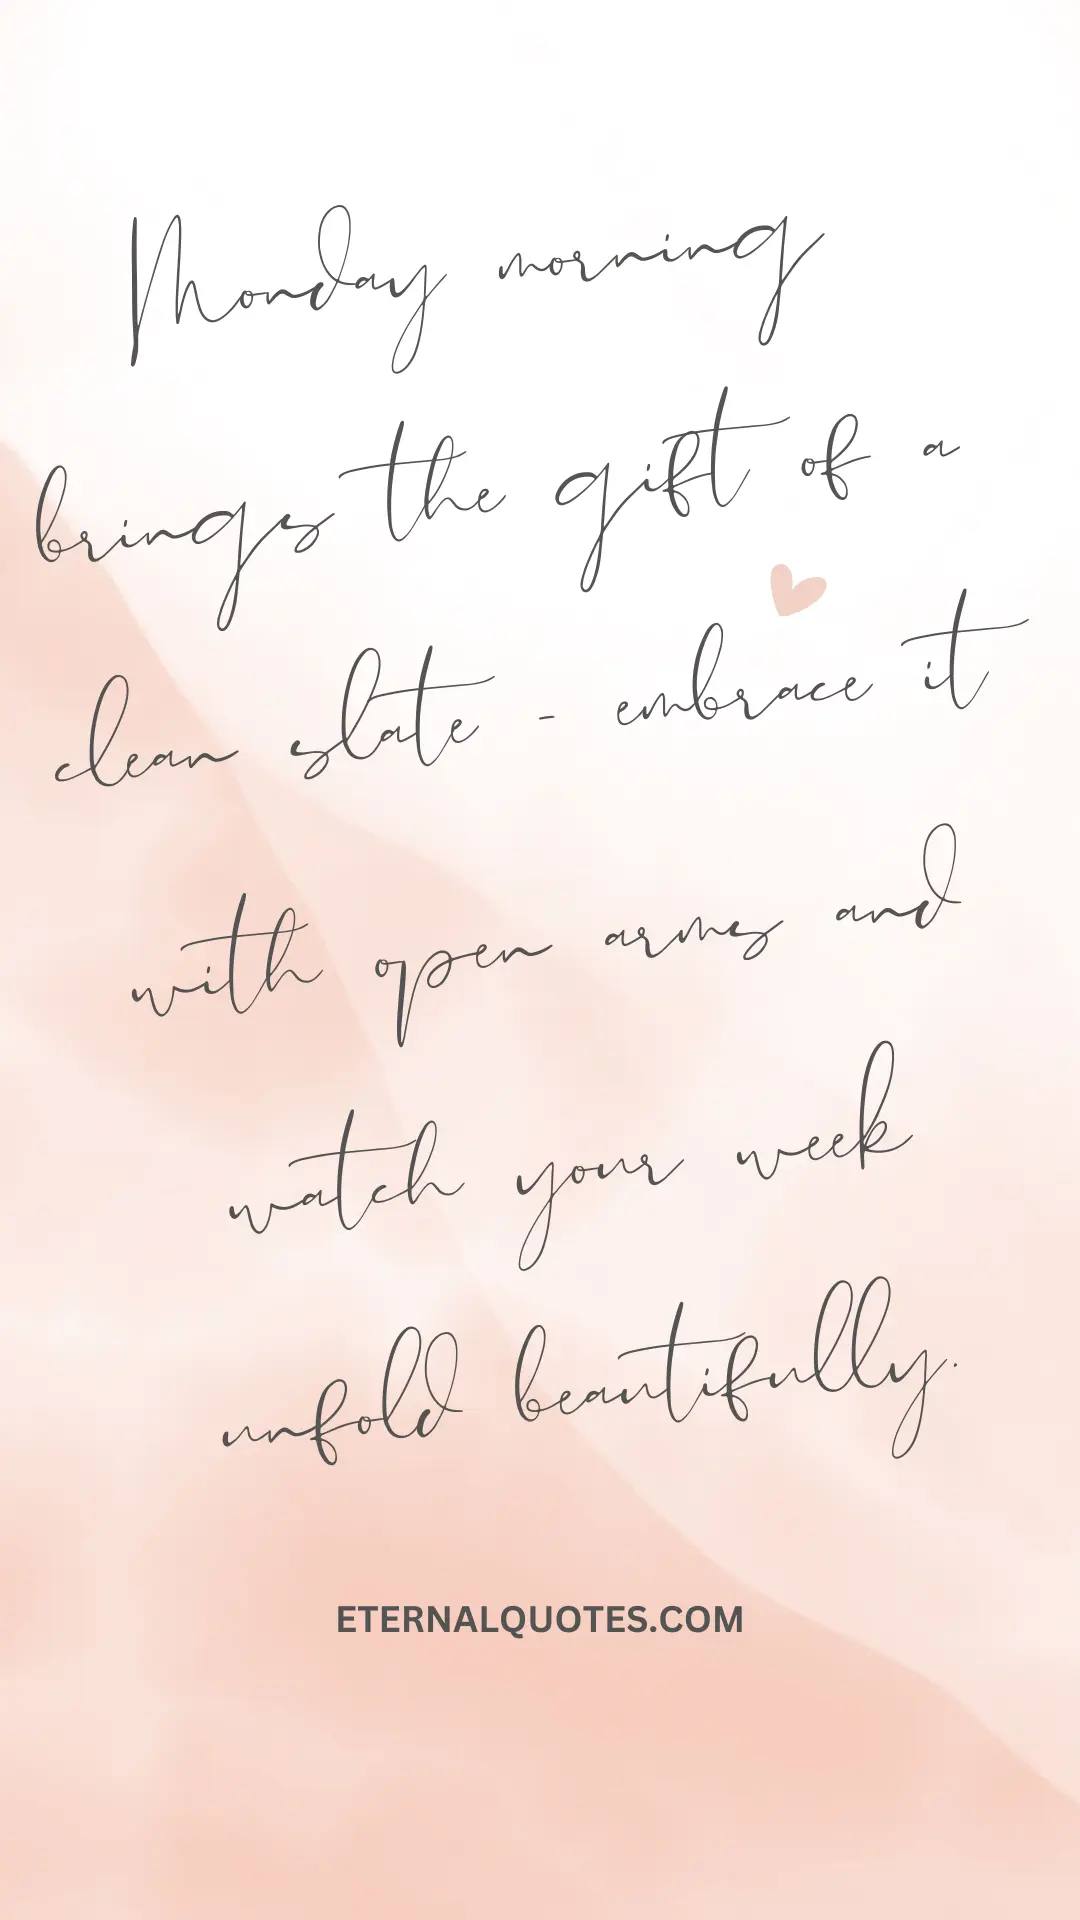 Monday morning
brings the gift of a
clean slate - embrace it
with open arms and
watch your week
unfold beautifully.
ETERNALQUOTES.COM